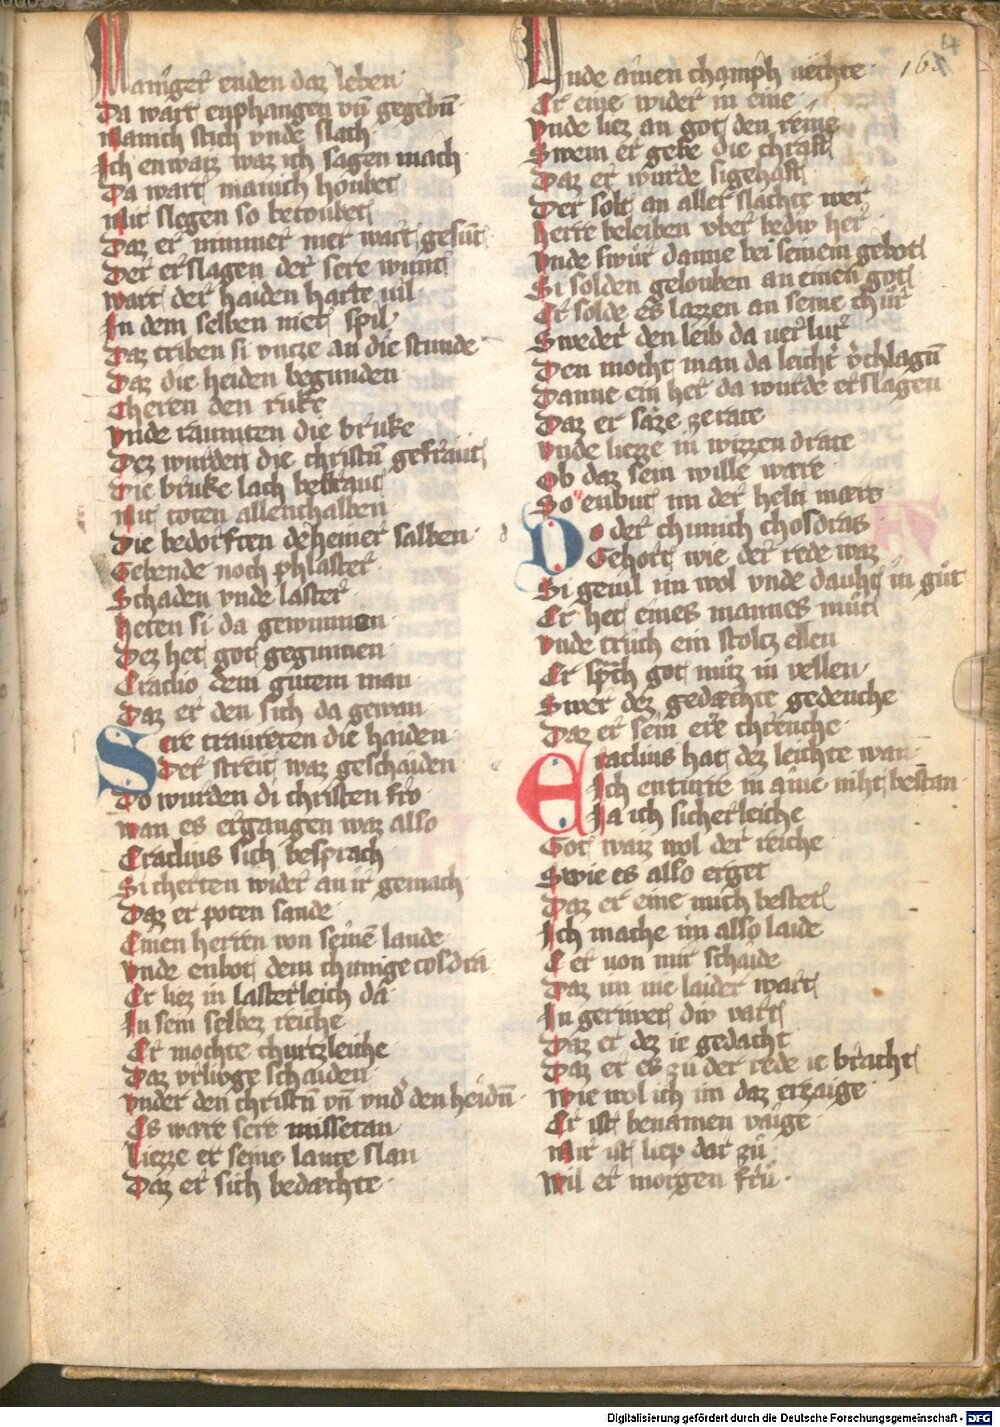 Maniger enden daz leben
Da wart enphangen vn̄ gegebn̄
Manich stich vnde slach
Ich enwaiz waz ich sagen mach
Da wart manich houbet
Mit slegen so betoubet
Daz er nimmer mer wart gesunt
Der erslagen der sere wunt
Wart der haiden harte uil
In dem selben niet spil
Daz triben si vncze an die stunde
Daz die heiden begunden
Cheren den ruke
Vnde raumten die bruke
Dez wurden die christn̄ gefraut
Die bruke lach bestraut
Mit toten allenthalben
Die bedorften deheiner salben
Gebende noch phlaster
Schaden vnde laster
Heten si da gewunnen
Dez het got gegunnen
Eraclio dem gutem man
Daz er den sich da gewan
Sere traureten die haiden
Der streit waz geschaiden
Do wurden di christen fro
Wan es ergangen waz also
Eraclius sich besprach
Si cherten wider an ir gemach
Daz er poten sande
Einen herren von seinē lande
Vnde enbot dem chunige cosdra
Er liez in lasterleich da
In sein selbez reiche
Er mochte churtzleiche
Daz vrliuge schaiden
Vnder den christn̄ vn̄ vnd' den heidn̄
Es ware sere missetan
Liezze er seine laute slan
Daz er sich bedæchte
Vnde ainen champh uechte
Er eine wider in eine
Vnde liez an got den reine
Swem er gebe die chraft
Daz er wurde sigehaft
Der solt an aller slachte wer
Herre beleiben vber bediv her
Vnde swůr danne bei seinem gebot
Si solden gelouben an einen got
Er solde es lazzen an seine chůr
Sweder den leib da uerlur
Den mocht man da leicht v̓chlagn̄
Danne ein her da wurde erslagen
Daz er sæze ze rate
Vnde liezze in wizzen drate
Ob daz sein wille ware
So enbut im der helt mære
Do der chunich chosdras
Gehort wie der rede waz
Si geuil im wol vnde dauht in gůt
Er het eines mannes můt
Vnde truch ein stoltz ellen
Er sprach got můz in vellen
Swer dez gedæchte gedenche
Daz er sein ere chrenche
Eraclius hat dez leichte wan
Ich enturre in aine niht bestan
Ja ich sicherleiche
Got waiz wol der reiche
Swie es also erget
Daz er eine mich bestet
Ich mache im also laide
E er uon mir schaide
Daz im nie laider wart
In geriwet div vart
Daz er dez ie gedacht
Daz er es zů der rede ie bracht
Wie wol ich im daz erzaige
Er ist benamen vaige
Mir ist liep dar zů
Wil er morgen frů
Digitalisierung gefördert durch die Deutsche Forschungsgemeinschaft - DFG